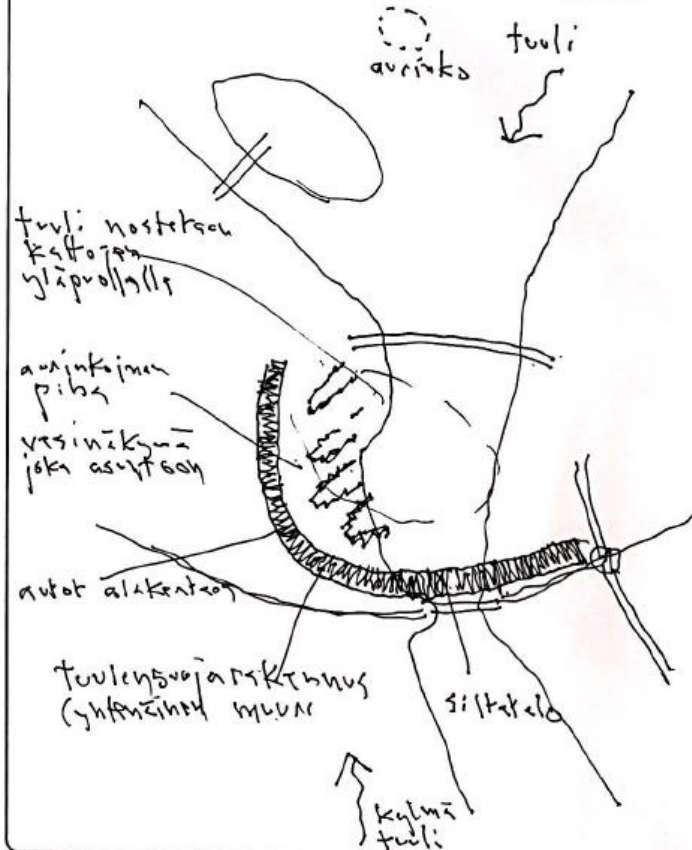 tuuli
aurinko
tuuli nostetaan
kattojen
yläpuolella
aurinkoinen
piha
vesinäkymä
joka asuntoon
autot alakertaan
tuulensuojarakennus
(yhtenäinen muuri
siltatalo
kylmä
tuuli